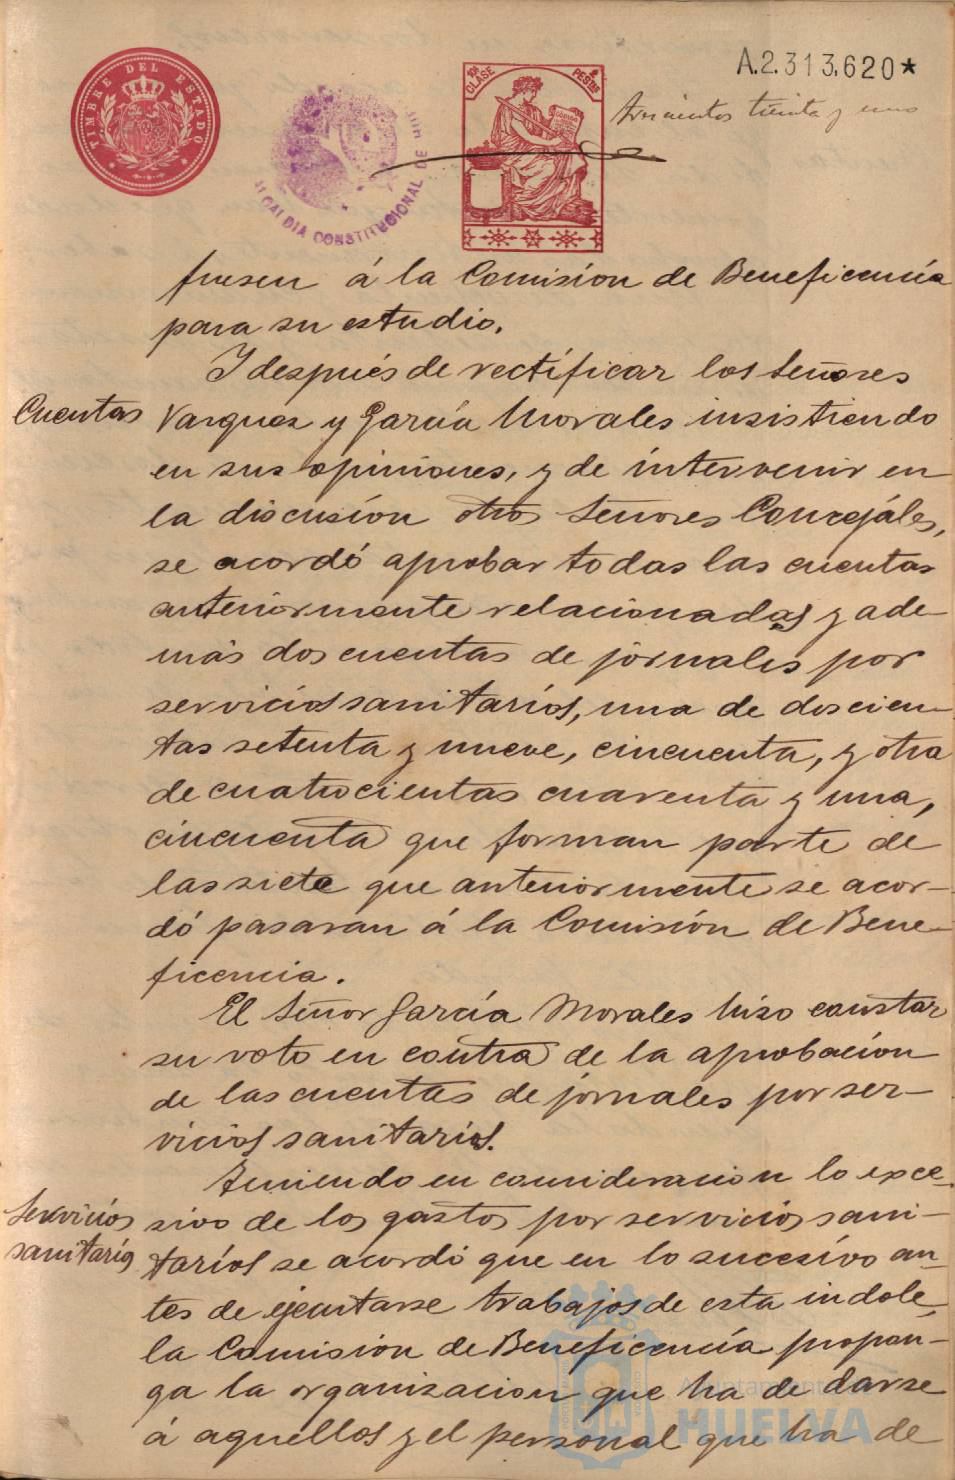 TIMBRE DEL ESTADO
ALCALDIA CONSTITUCIONAL DE
10ª CLASE
PESETAS
A.2.313.620*
trescientos treinta y uno
fuesen á la Comisión de Beneficencia
para su estudio.
Y después de rectificar los Señores
Cuentas
Vazquez y García Morales insistiendo
en sus opiniones, y de intervenir en
la discusión otros Señores Concejáles,
se acordó aprobar todas las cuentas
anteriormente relacionadas y ade-
más dos cuentas de jornales por
servicios sanitarios, una de doscien-
tas setenta y nueve, cincuenta, y otra
de cuatrocientas cuarenta y una,
cincuenta que forman parte de
las siete que anteriormente se acor-
dó pasaran á la Comisión de Bene-
ficencia.
El Señor García Morales hizo constar
su voto en contra de la aprobación
de las cuentas de jornales por ser-
vicios sanitarios.
Teniendo en consideracion lo exce-
Servicios
sanitarios
sivo de los gastos por servicios sani-
tarios se acordó que en lo sucesivo an-
tes de ejecutarse trabajos de esta indole,
la Comisión de Beneficencia propon-
ga la organizacion que ha de darse
á aquellos y el personal que ha de
Ayuntamiento de
HUELVA